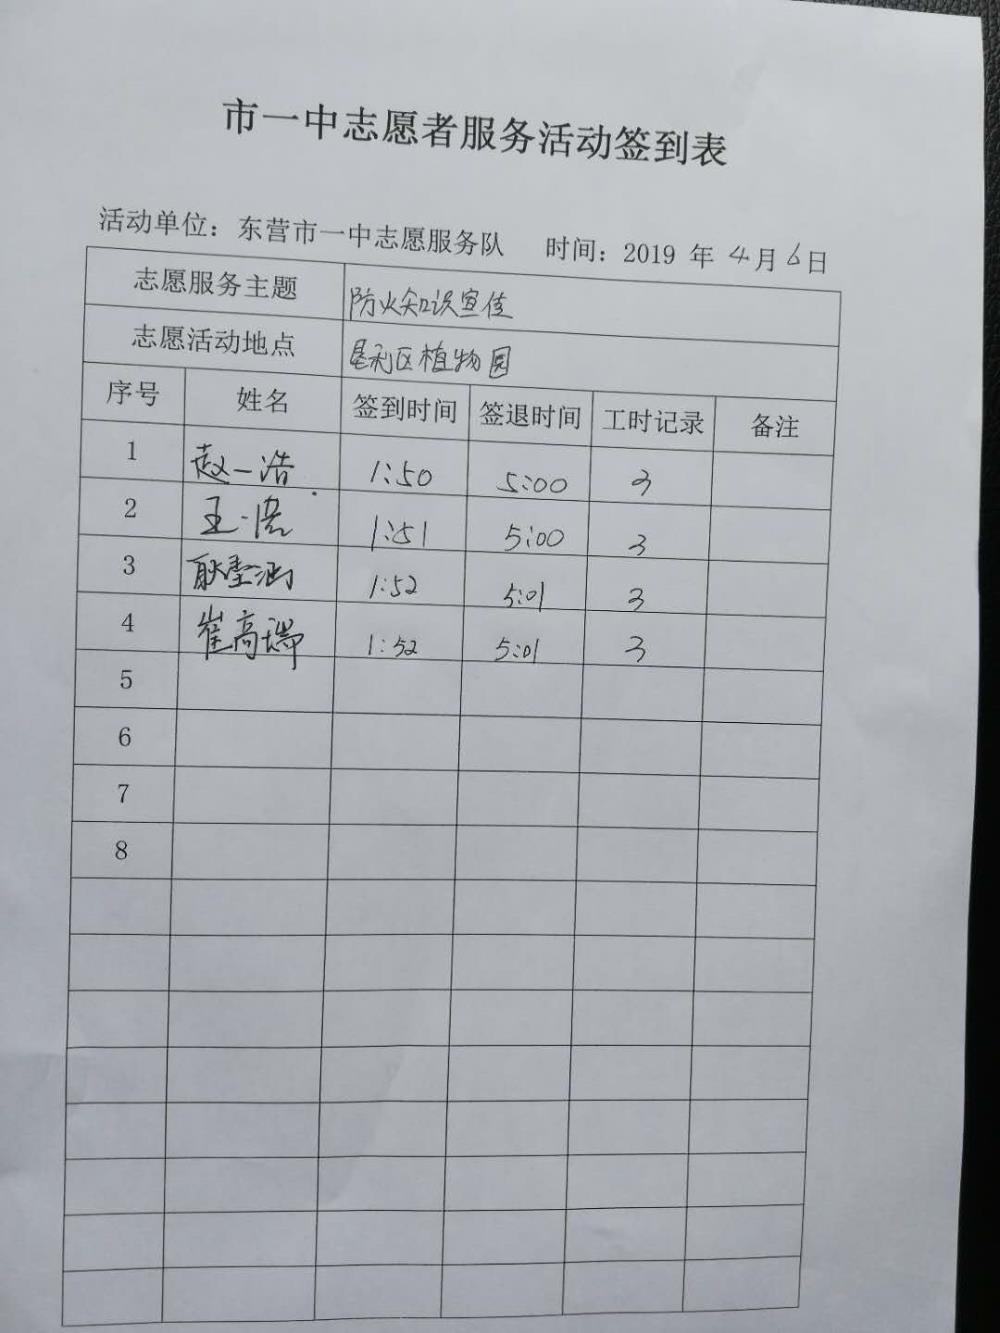 市一中志愿者服务活动签到表
活动单位：东营市一中志愿服务队 时间：2019 年 4月 6日
志愿服务主题 防火知识宣传
志愿活动地点 垦利区植物园
序号 姓名 签到时间 签退时间 工时记录 备注
1 赵一浩 1:50 5:00 3
2 王一 1:51 5:00 3
3 耿 涵 1:52 5:01 3
4 崔高瑞 1:52 5:01 3
5
6
7
8